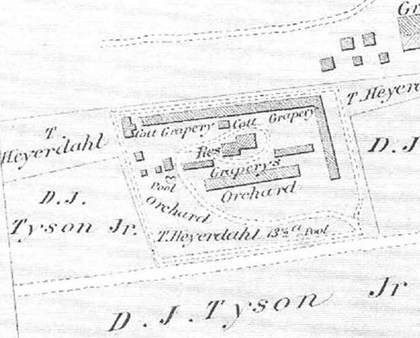 Gr
T. Heyerda
T.
Heyerdahl
Cott Grapery Cott Grapery
Res
D. J.
Graperys
Pool
Orchard
Orchard
D. J.
Tyson Jr.
T. Heyerdahl 13½ a Pool
D. J. Tyson Jr